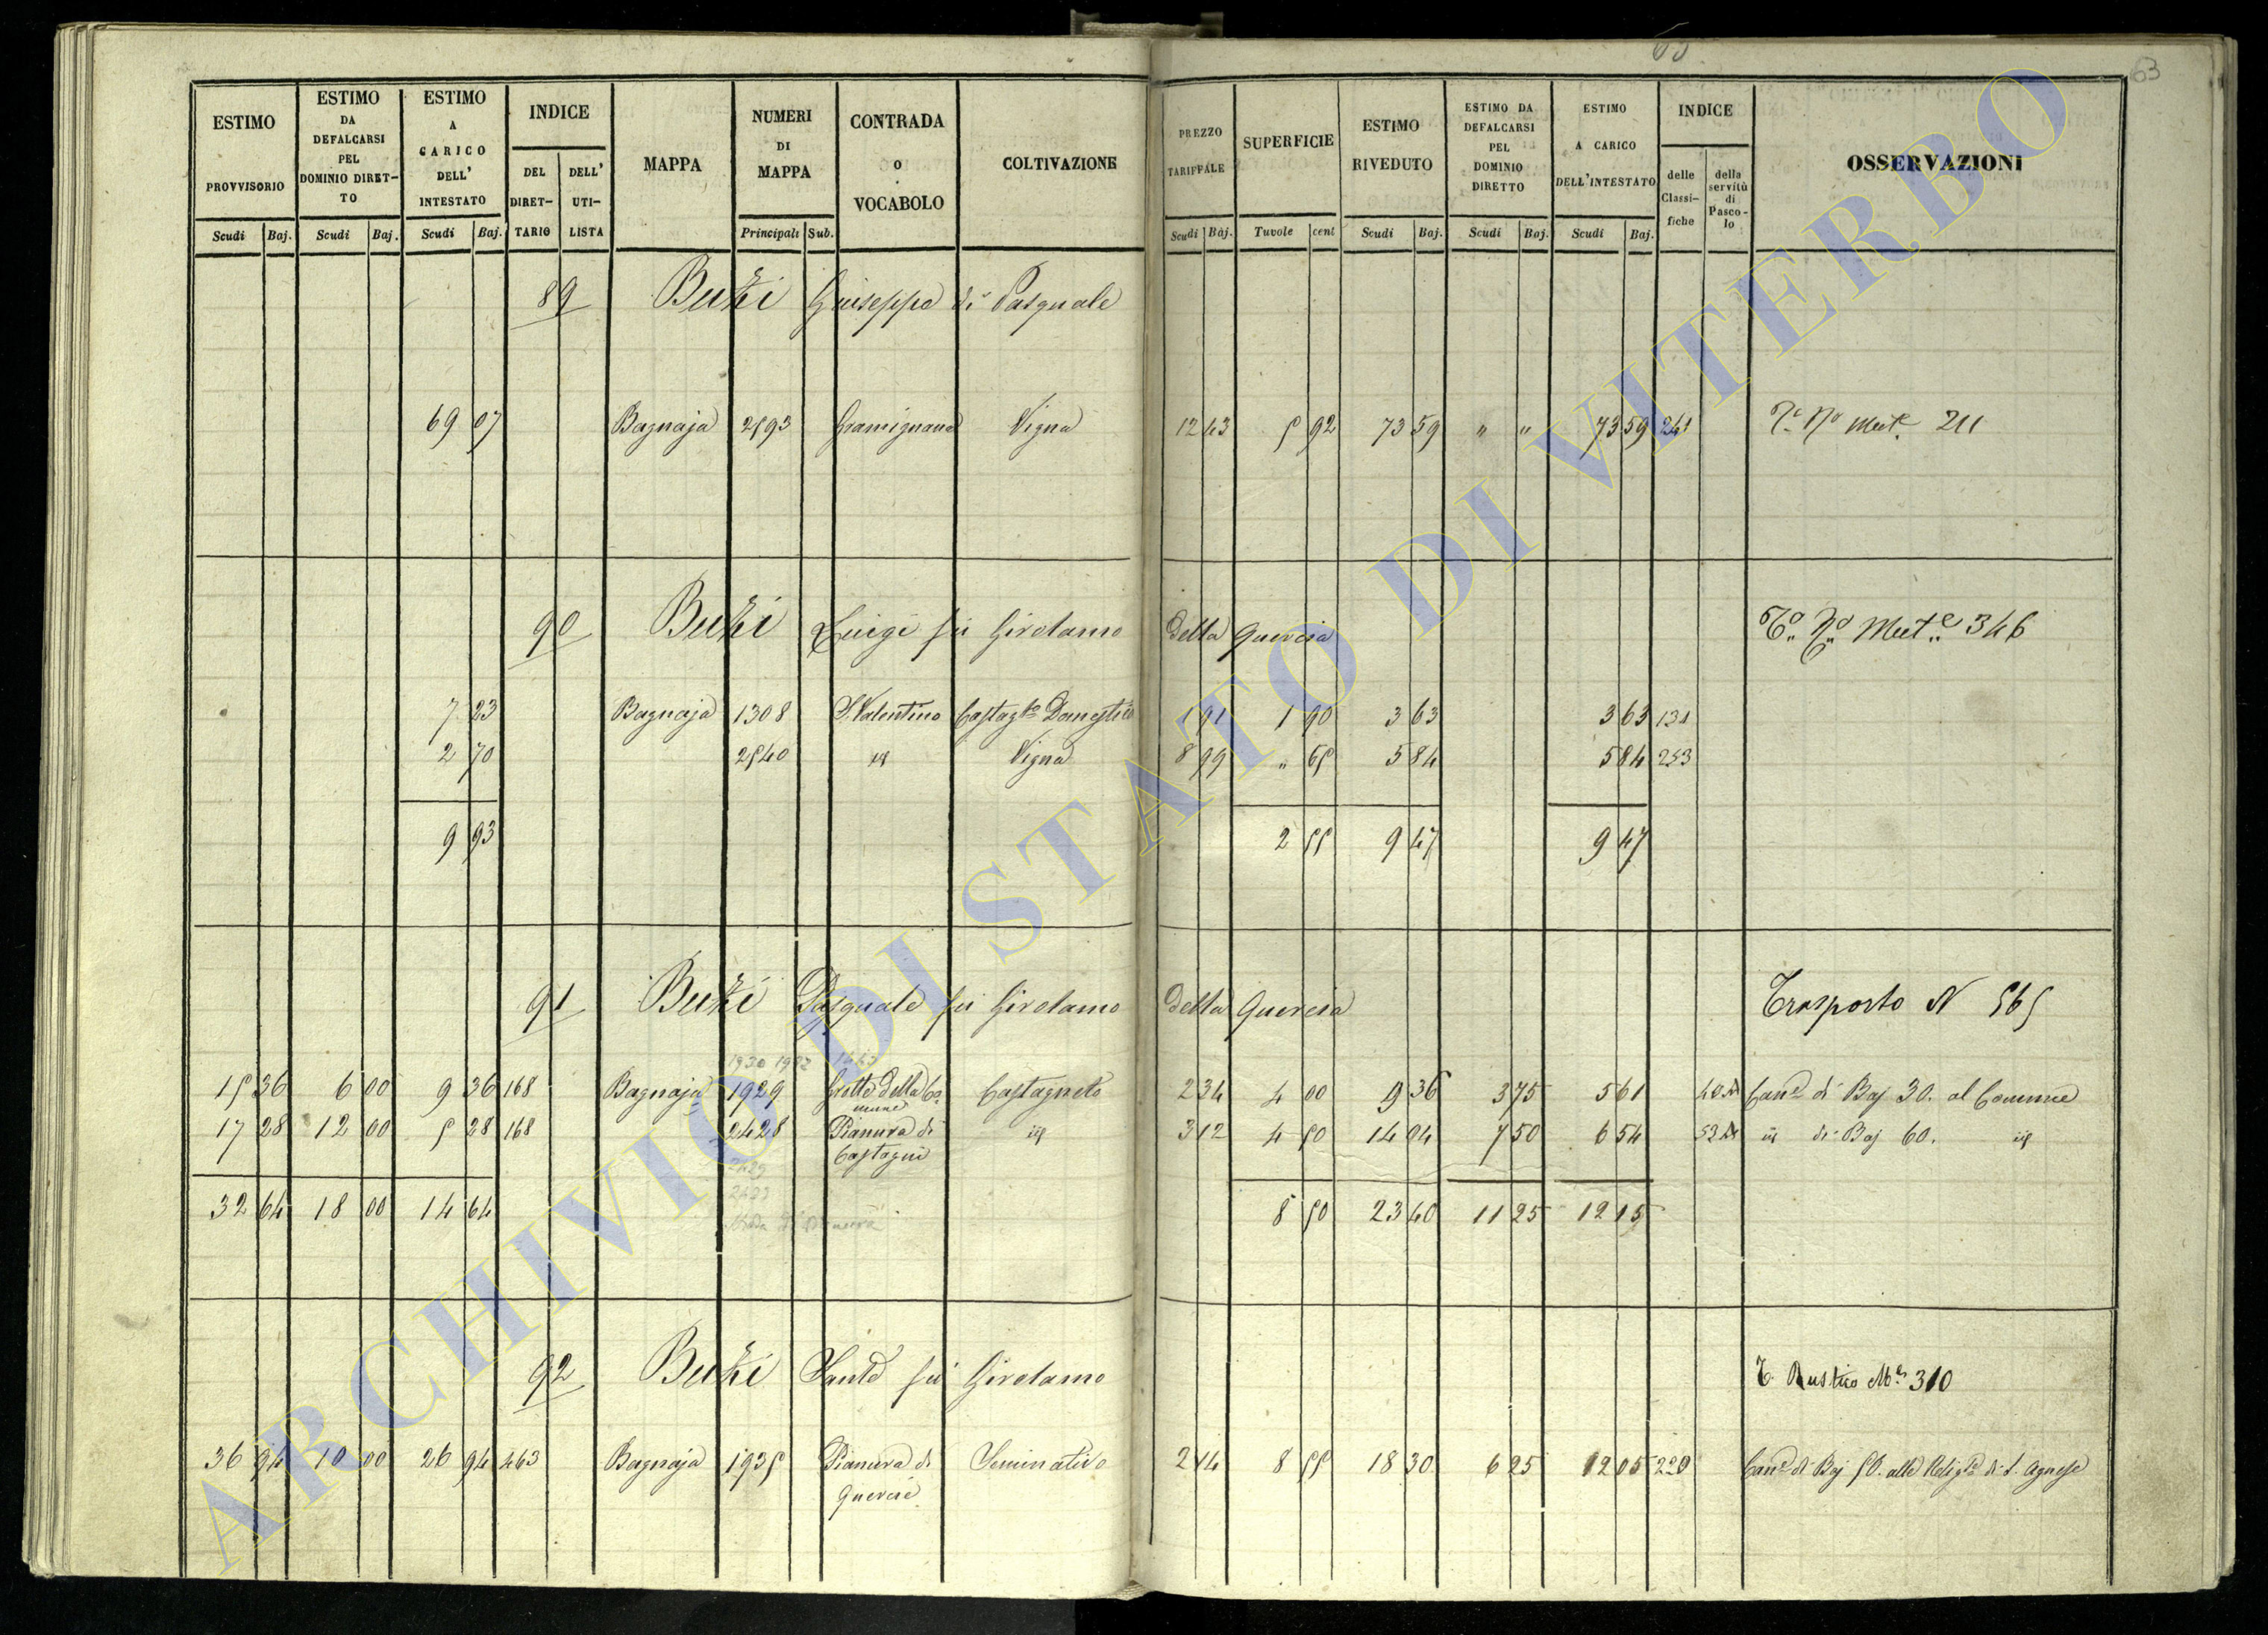 63
ESTIMO PROVVISORIO Scudi Baj.
ESTIMO DA DEFALCARSI PEL DOMINIO DIRETTO Scudi Baj.
ESTIMO A CARICO DELL' INTESTATO Scudi Baj.
INDICE DEL DIRET-TARIO DELL' UTI-LISTA
MAPPA
NUMERI DI MAPPA Principali Sub.
CONTRADA o VOCABOLO
COLTIVAZIONE
PREZZO TARIFFALE Scudi Baj.
SUPERFICIE Tavole cent
ESTIMO RIVEDUTO Scudi Baj.
ESTIMO DA DEFALCARSI PEL DOMINIO DIRETTO Scudi Baj.
ESTIMO A CARICO DELL'INTESTATO Scudi Baj.
INDICE delle Classi-fiche della servitù di Pasco-lo
OSSERVAZIONI
89 Buzi Giuseppe di Pasquale
69 07 Bagnaja 2593 Gramignana Vigna 12 43 5 92 73 59 " " 73 59 241 211
90 Buzi Luigi fu Girolamo della Quercia 346
7 23 Bagnaja 1308 S. Valentino Castagto Domestico 1 91 1 90 3 63 3 63 131
2 70 2540 id Vigna 8 99 " 65 5 84 5 84 253
9 93 2 55 9 47 9 47
91 Buzi Pasquale fu Girolamo della Quercia Trasporto N 565
1930
15 36 6 00 9 36 168 Bagnaja 1929 Grotte della Comune Castagneto 2 34 4 00 9 36 3 75 5 61 Cane di Baj 30. al Comune
17 28 12 00 5 28 168 2428 Pianura di Castagni id 3 12 4 50 14 04 7 50 6 54 id di Baj 60. id
2429
32 64 18 00 14 64 8 50 23 40 11 25 12 15
92 Buzi Sante fu Girolamo T. Rustico Mre 310
36 94 10 00 26 94 463 Bagnaja 1935 Pianura di Quercie Seminativo 2 14 8 55 18 30 6 25 12 05 220 Cane di Baj 50. alle Religse di S. Agnese
ARCHIVIO DI STATO DI VITERBO